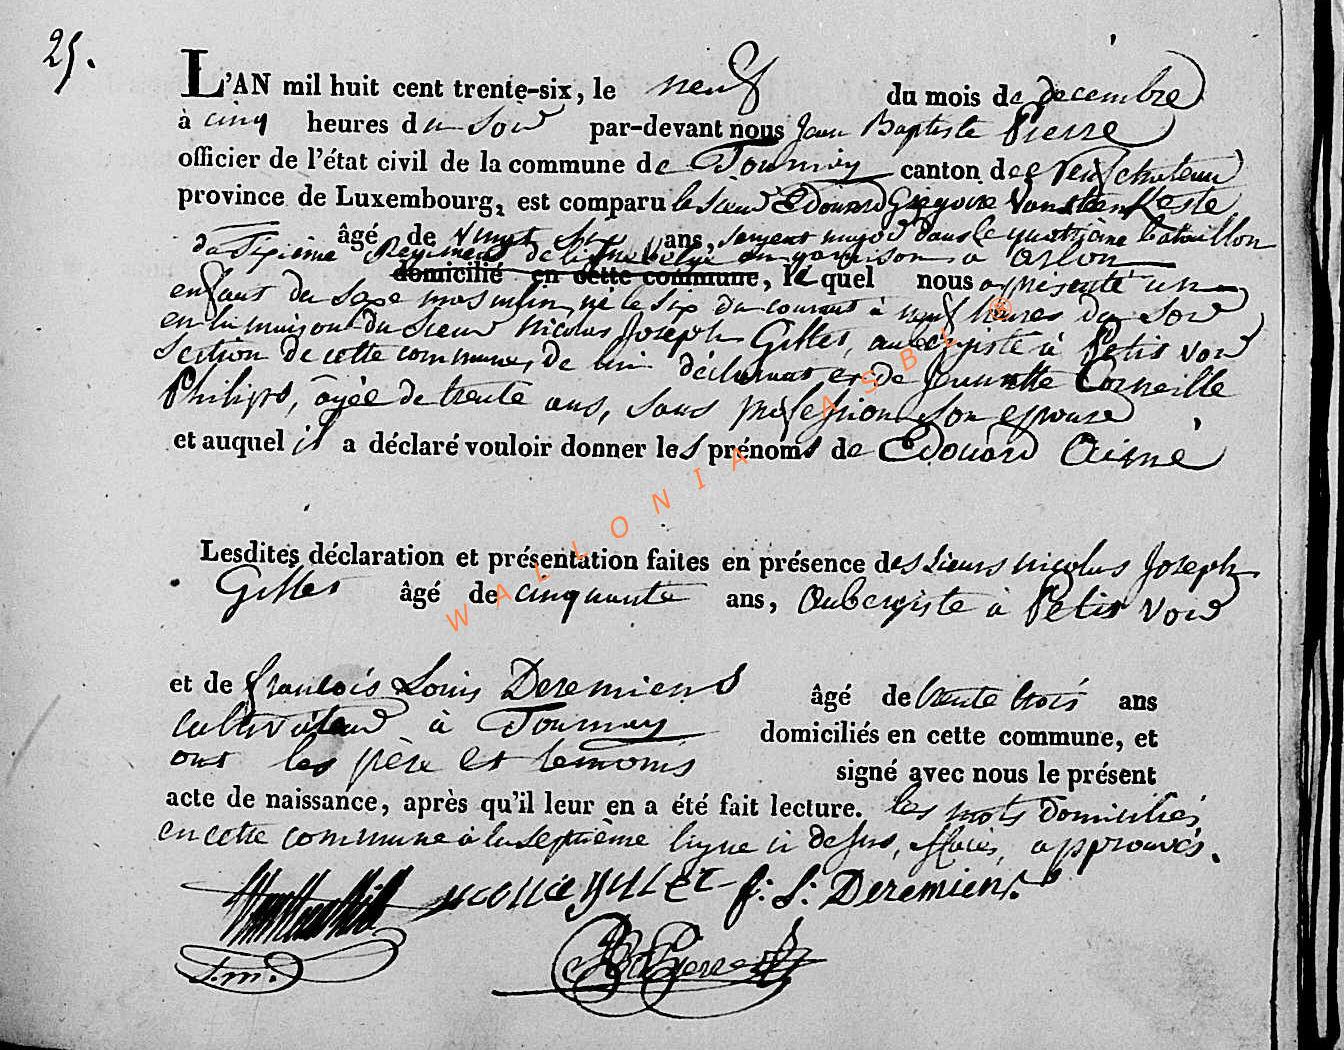 25.
L'AN mil huit cent trente-six, le neuf du mois de decembre
à cinq heures du soir par-devant nous Jean Baptiste Pierre
officier de l'état civil de la commune de Tournay canton de Neufchateau
province de Luxembourg, est comparu le sieur Edouard Gregoire Vansteenkeste
âgé de vingt six ans, sergent major dans le quatrième bataillon
du sixième Regiment de ligne belge en garnison a Arlon
domicilié en cette commune, lequel nous a présenté un
enfant du sexe masculin, né le six du courant à neuf heures du soir
en la maison du sieur Nicolas Joseph Gillet, aubergiste à Petit voir
section de cette commune, de lui déclarant et de Jeannette Corneille
Philips, âgée de trente ans, sans profession son epouse
et auquel il a déclaré vouloir donner les prénoms de Edouard Aimé
Lesdites déclaration et présentation faites en présence des sieurs Nicolas Joseph
Gillet âgé de cinquante ans, aubergiste à Petit voir
et de françois Louis Deremiens âgé de trente trois ans
cultivateur à Tournay domiciliés en cette commune, et
ont les père et temoins signé avec nous le présent
acte de naissance, après qu'il leur en a été fait lecture. les mots domiciliés
en cette commune à la septième ligne ci dessus, approuvés.
f: L: Deremiens
S.m.
JB Pierre
WALLONIA ASBL ®